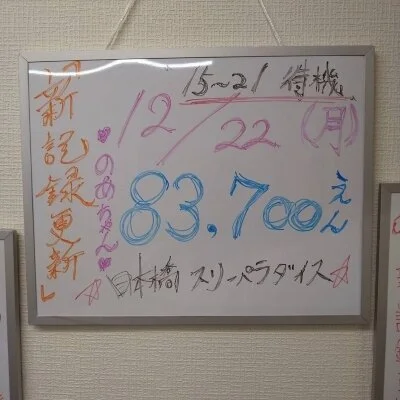 「新記録更新」
♥のあちゃん♥
15〜21 待機
12/22(月)
83.700えん
☆日本橋 スリーパラダイス☆